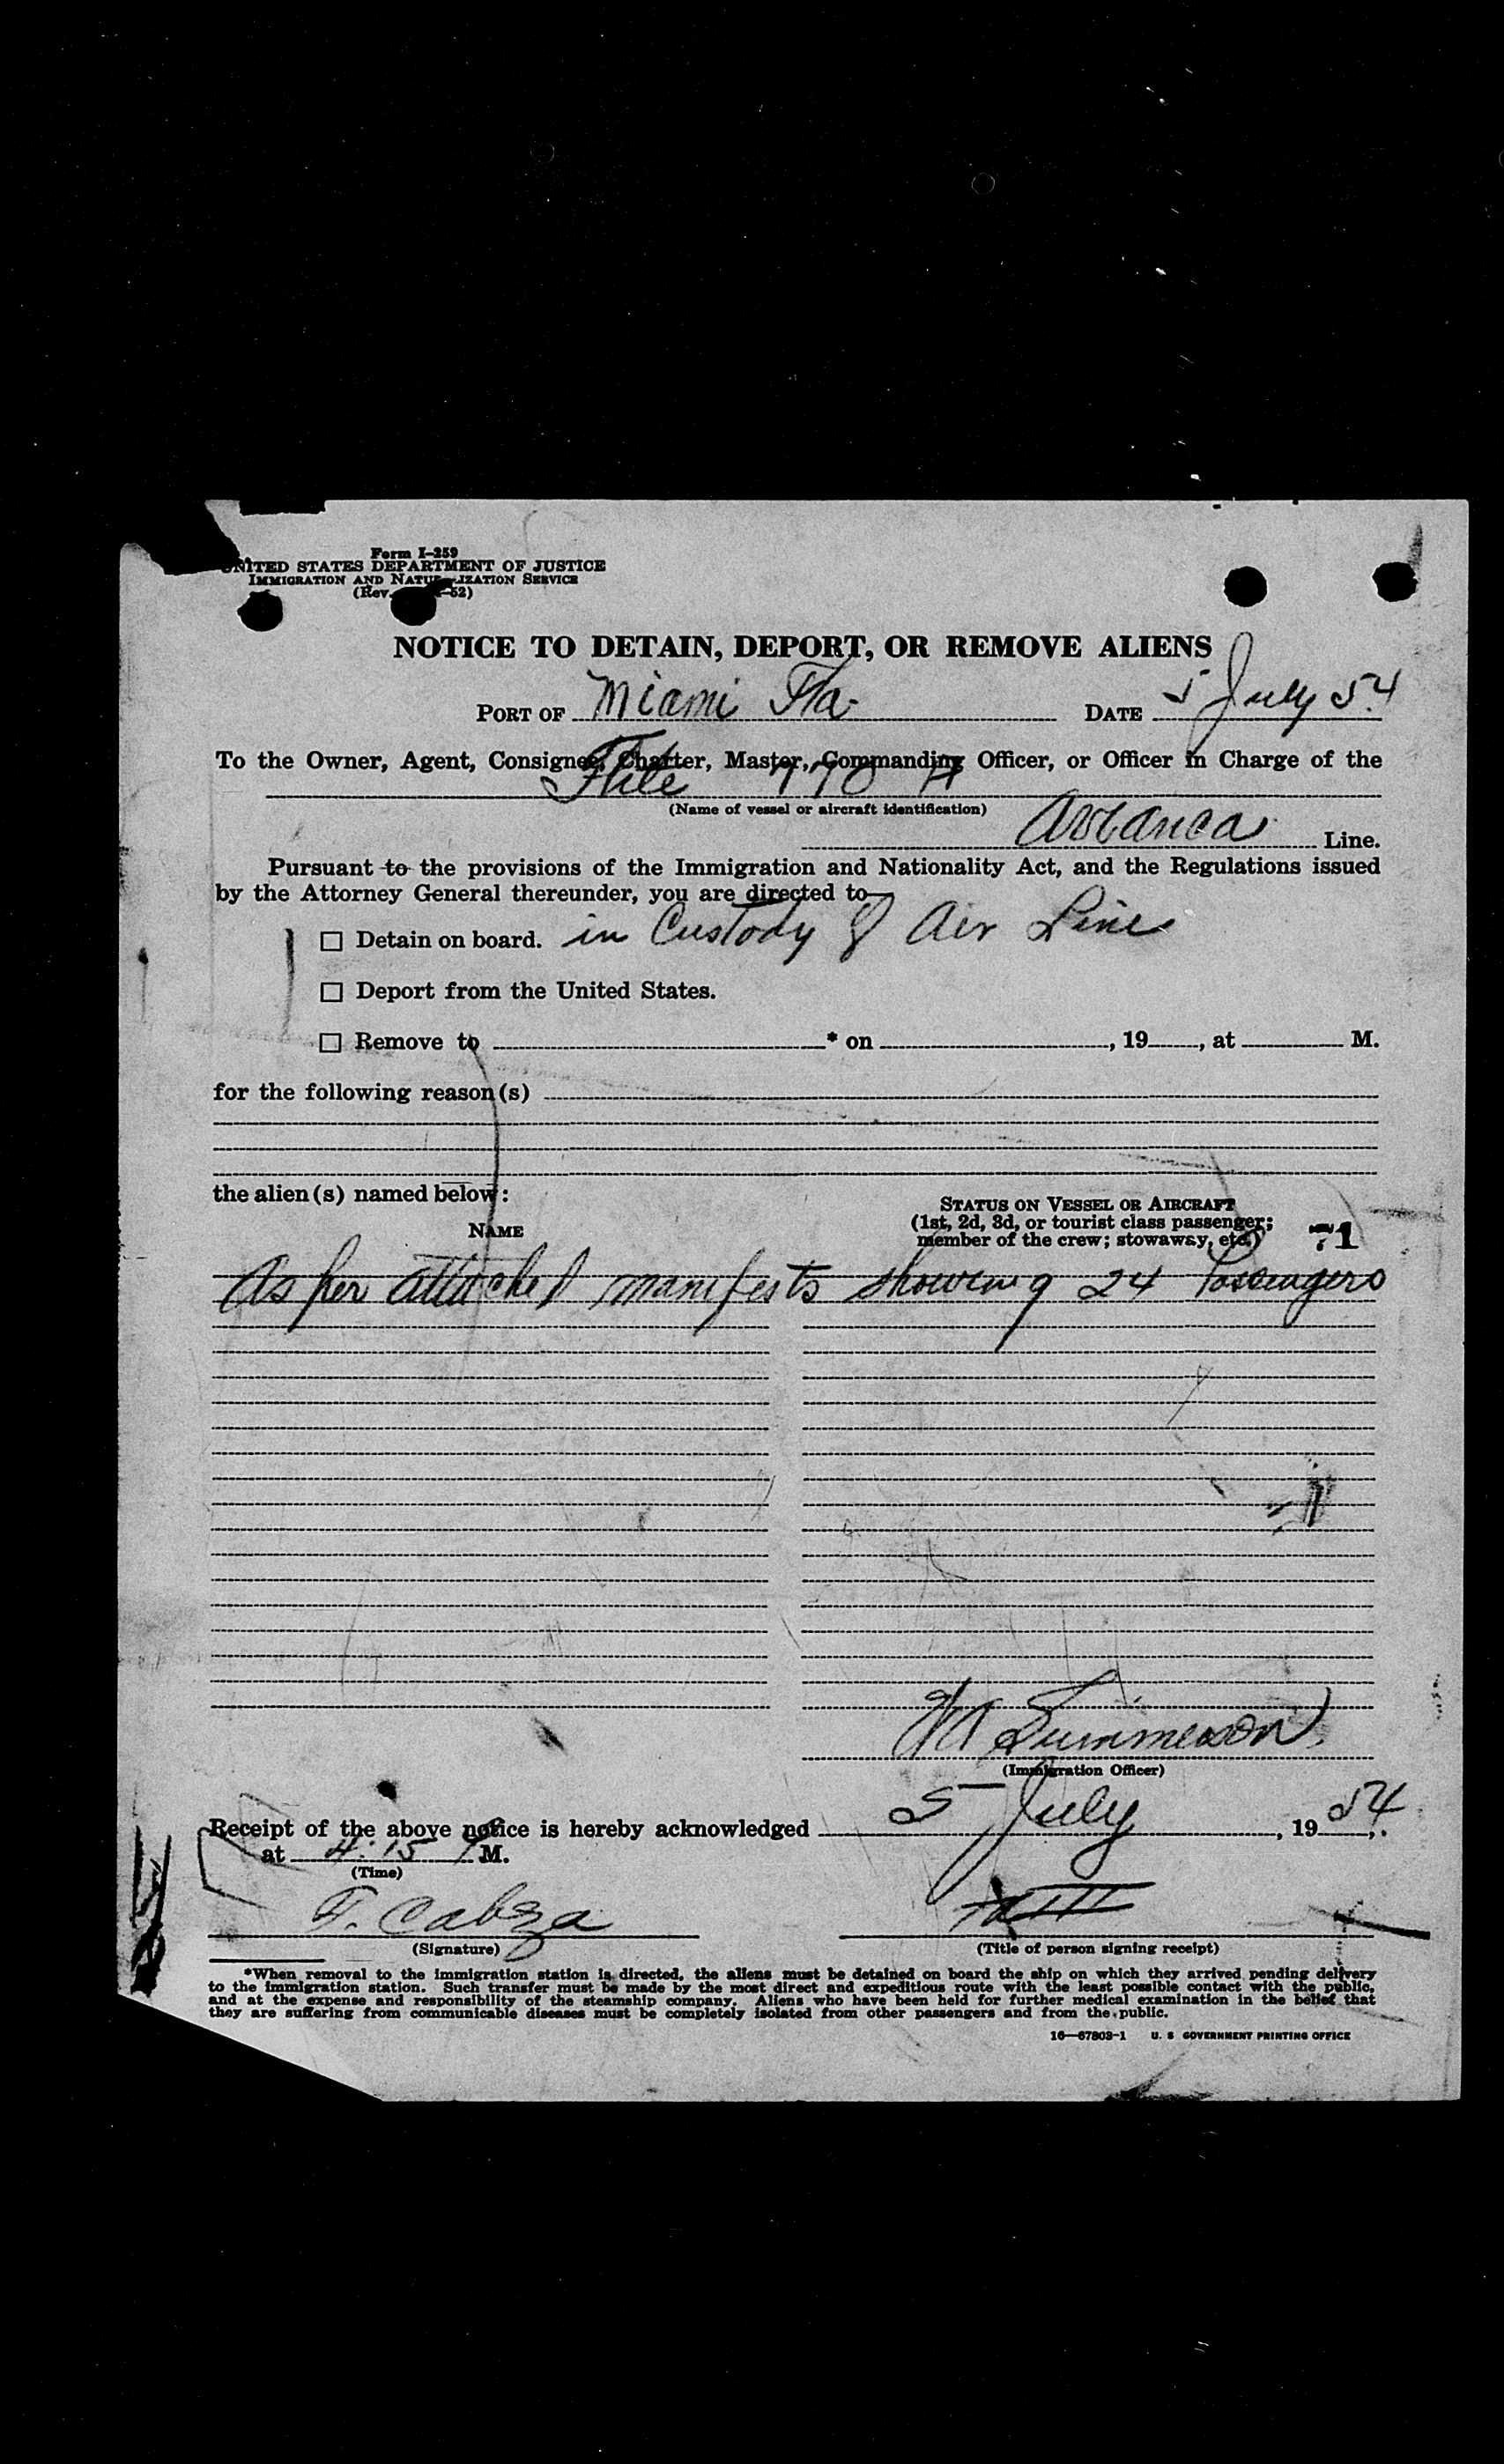 Form I-259
UNITED STATES DEPARTMENT OF JUSTICE
IMMIGRATION AND NATURALIZATION SERVICE
(Rev. -52)
NOTICE TO DETAIN, DEPORT, OR REMOVE ALIENS
PORT OF Miami Fla. DATE 5 July 54
To the Owner, Agent, Consignee, Charter, Master, Commanding Officer, or Officer in Charge of the
Flite 770 A
(Name of vessel or aircraft identification)
Avianca Line.
Pursuant to the provisions of the Immigration and Nationality Act, and the Regulations issued
by the Attorney General thereunder, you are directed to—
☐ Detain on board. in Custody of Air Line
☐ Deport from the United States.
☐ Remove to * on , 19 , at M.
for the following reason(s)
the alien(s) named below:
NAME
STATUS ON VESSEL OR AIRCRAFT
(1st, 2d, 3d, or tourist class passenger;
member of the crew; stowaway, etc.)
71
As per attached manifests showing 24 Passengers
Summerson
(Immigration Officer)
Receipt of the above notice is hereby acknowledged 5 July, 1954.
at 4:15 M.
(Time)
F. Cabza
(Signature)
(Title of person signing receipt)
*When removal to the immigration station is directed, the aliens must be detained on board the ship on which they arrived pending delivery
to the immigration station. Such transfer must be made by the most direct and expeditious route with the least possible contact with the public,
and at the expense and responsibility of the steamship company. Aliens who have been held for further medical examination in the belief that
they are suffering from communicable diseases must be completely isolated from other passengers and from the public.
16—67803-1 U. S. GOVERNMENT PRINTING OFFICE